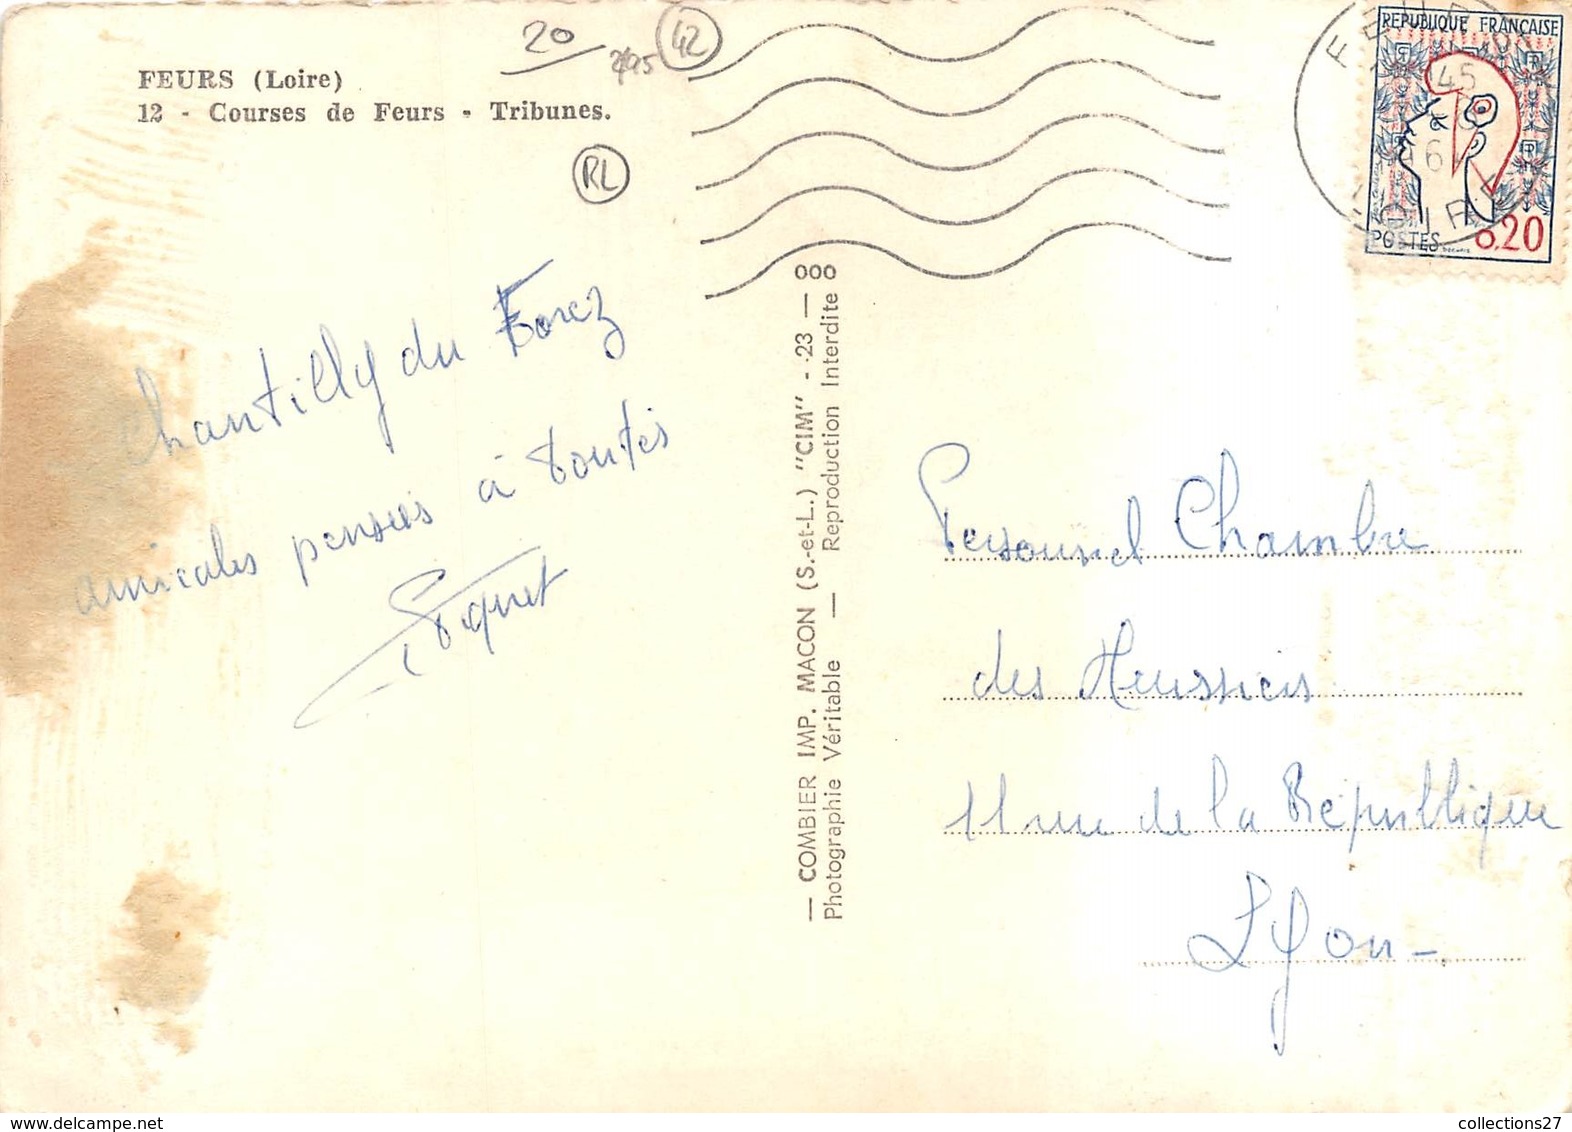 FEURS (Loire)
12 - Courses de Feurs - Tribunes.
20
495
42
RL
Chantilly du Forez
amicales pensées à toutes
Piquet
— COMBIER IMP. MACON (S.-et-L.) "CIM" - -23 — 000
Photographie Véritable — Reproduction Interdite
REPUBLIQUE FRANÇAISE
POSTES
0.20
FEURS
45
LOIRE
Personnel Chambre
des Huissiers
11 rue de la République
Lyon -
collections27